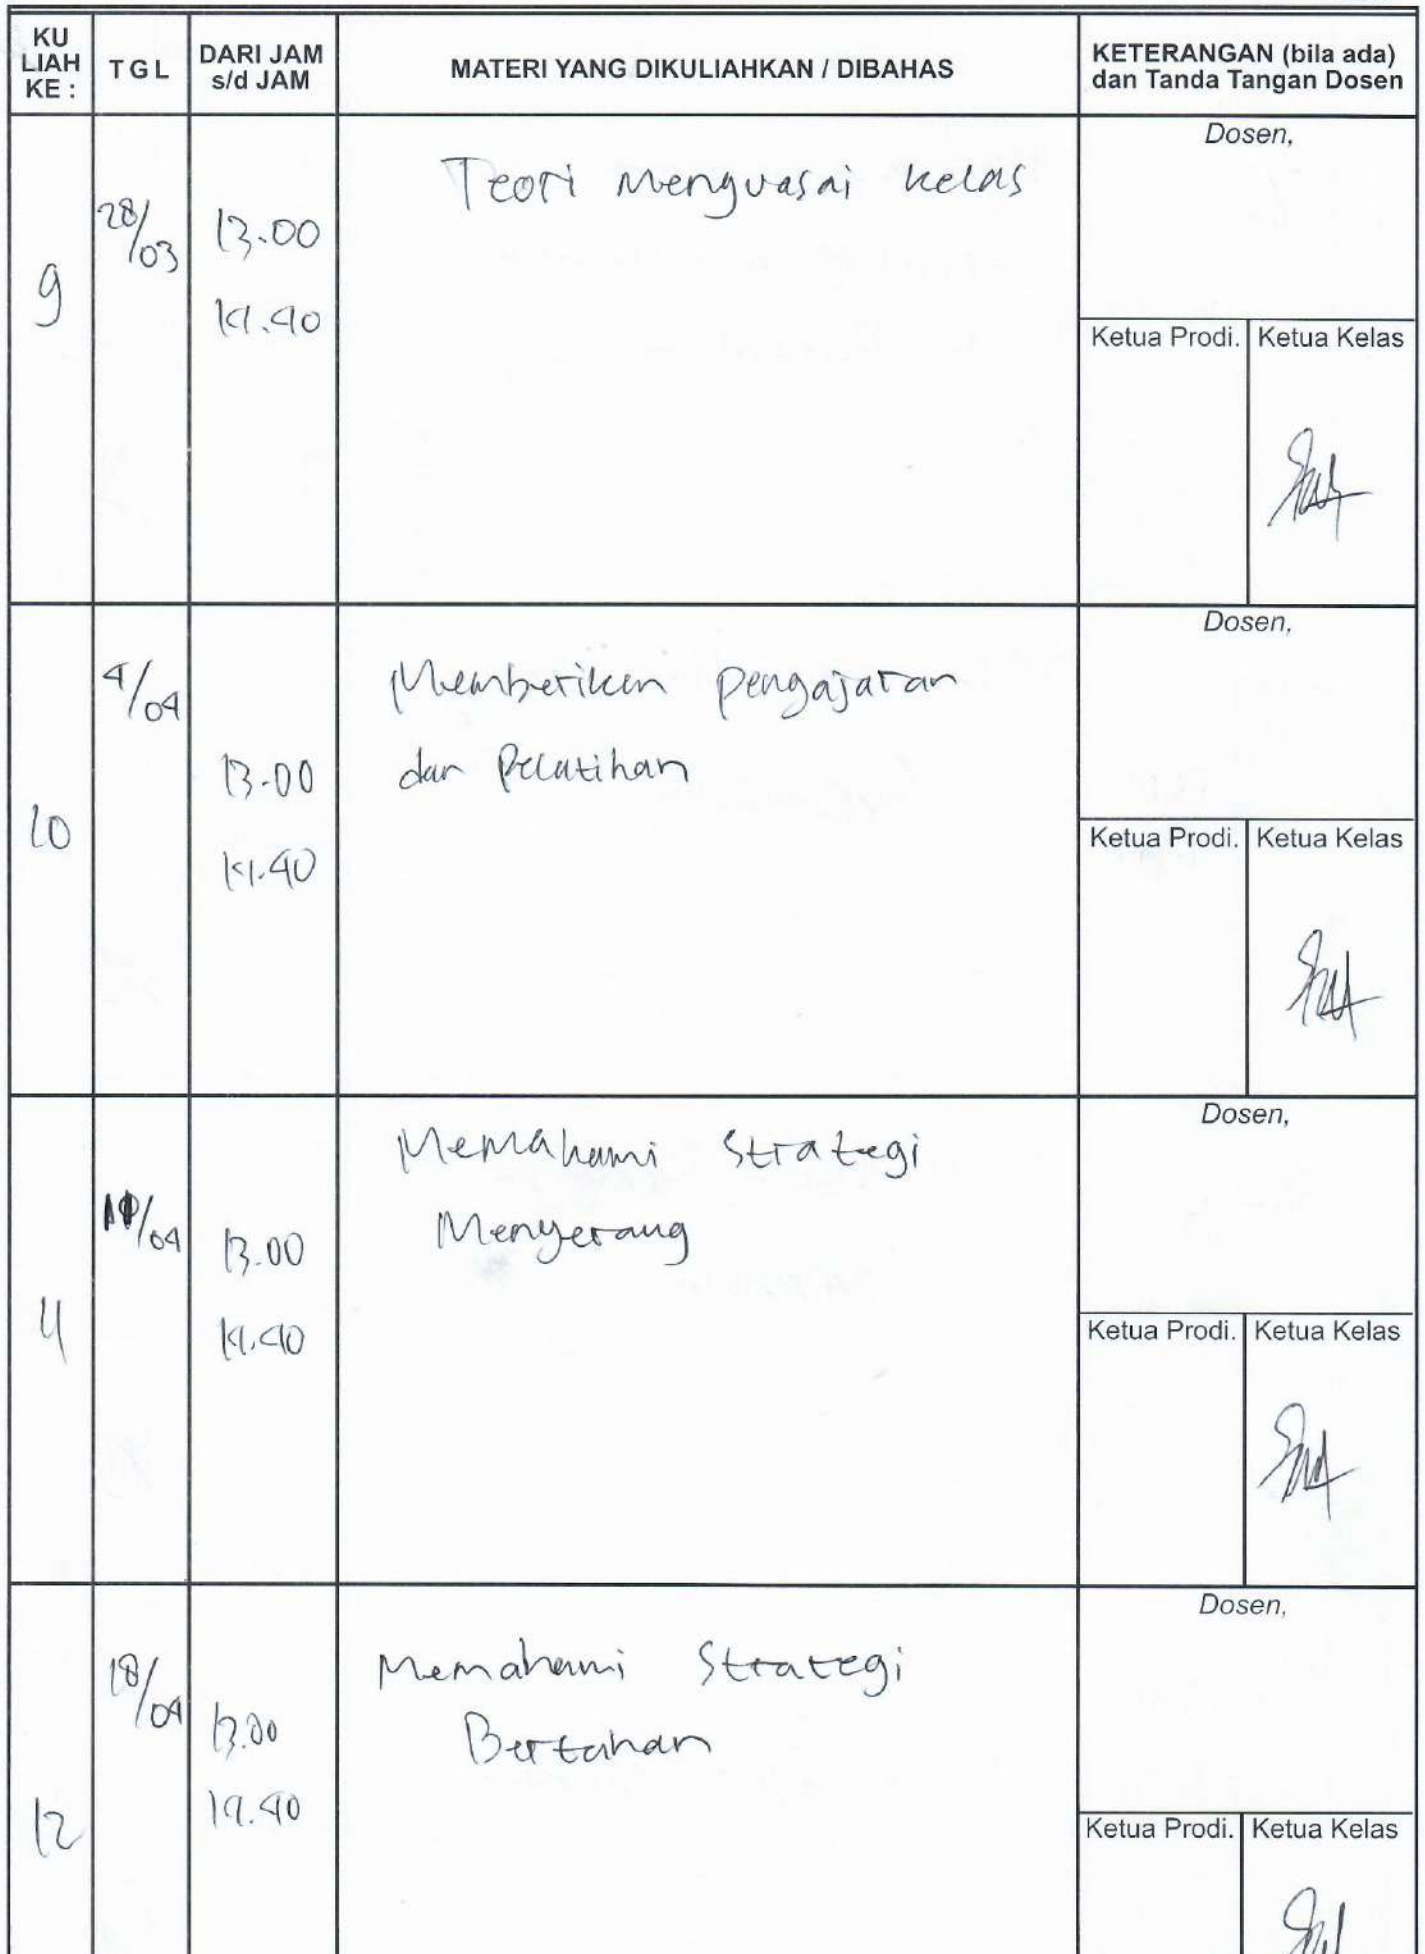 KU LIAH KE :
TGL
DARI JAM s/d JAM
MATERI YANG DIKULIAHKAN / DIBAHAS
KETERANGAN (bila ada) dan Tanda Tangan Dosen
9
28/03
13.00
14.40
Teori Menguasai kelas
Dosen,
Ketua Prodi.
Ketua Kelas
10
4/04
13.00
14.40
Memberikan pengajaran
dan Pelatihan
Dosen,
Ketua Prodi.
Ketua Kelas
11
11/04
13.00
14.40
Memahami Strategi
Menyerang
Dosen,
Ketua Prodi.
Ketua Kelas
12
18/04
13.00
14.40
Memahami Strategi
Bertahan
Dosen,
Ketua Prodi.
Ketua Kelas